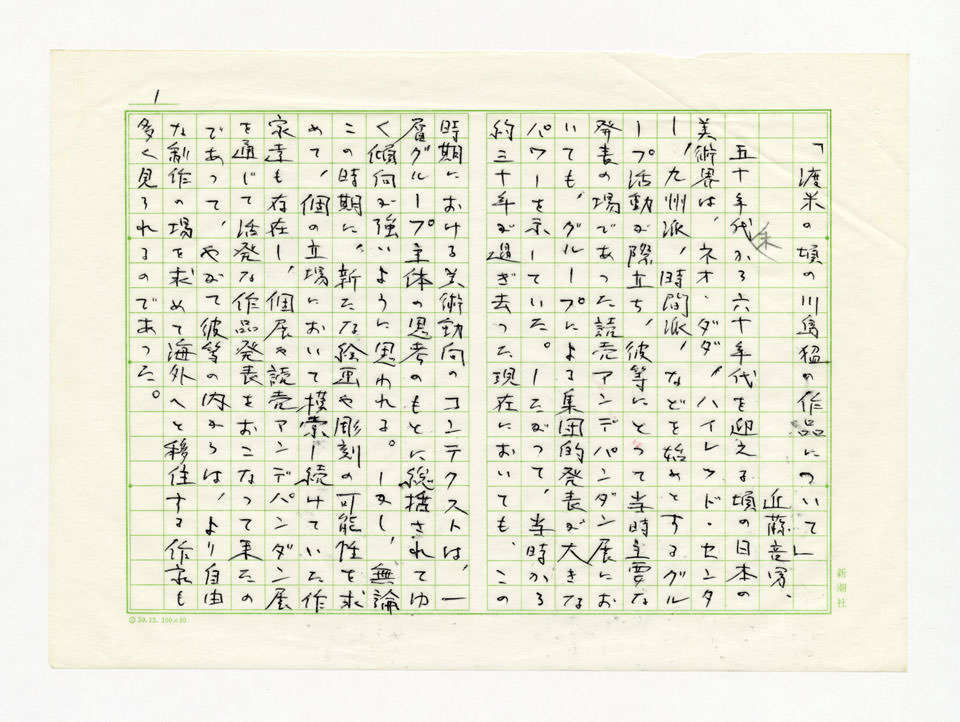 「渡米の頃の川島猛の作品について」
近藤竜男、
五十年代から六十年代を迎える頃の日本の
美術界は、ネオ・ダダ、ハイレッド・センタ
ー、九州派、時間派、などを始めとするグル
ープ活動が際立ち、彼等にとって当時主要な
発表の場であった読売アンデパンダン展にお
いても、グループによる集団的発表が大きな
パワーを示していた。したがって、当時から
約三十年が過ぎ去った現在においても、この
時期における美術動向のコンテクストは、一
層グループ主体の思考のもとに総括されてゆ
く傾向が強いように思われる。しかし、無論
この時期に、新たな絵画や彫刻の可能性を求
めて、個の立場において模索し続けていた作
家達も存在し、個展や読売アンデパンダン展
を通じて活発な作品発表をおこなって来たの
であって、やがて彼等の内からは、より自由
な制作の場を求めて海外へと移住する作家も
多く見られるのであった。
1
新潮社
59.12. 100×80